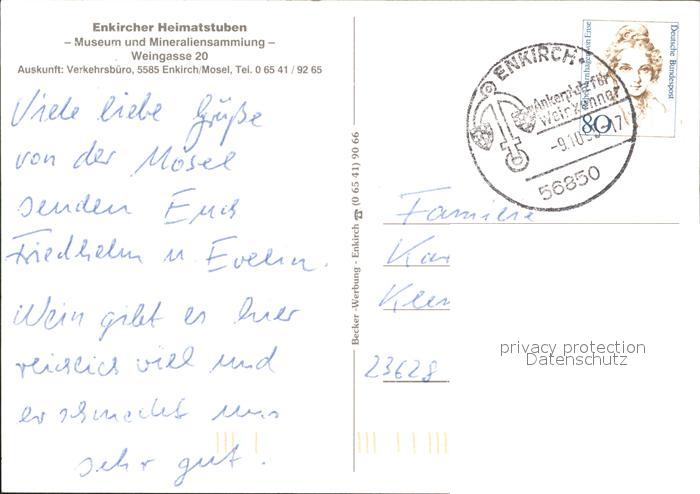 Enkircher Heimatstuben
– Museum und Mineraliensammlung –
Weingasse 20
Auskunft: Verkehrsbüro, 5585 Enkirch/Mosel, Tel. 0 65 41 / 92 65
Viele liebe Grüße
von der Mosel
senden Euch
Friedhelm u Evelin.
Wein gibt es hier
reichlich viel und
er schmeckt uns
sehr gut.
Becker -Werbung - Enkirch ☎ (0 65 41) 90 66
ENKIRCH
Ankerplatz für
Weinkenner
-9.10
-17
56850
Deutsche Bundespost
80
Familie
23628
privacy protection
Datenschutz